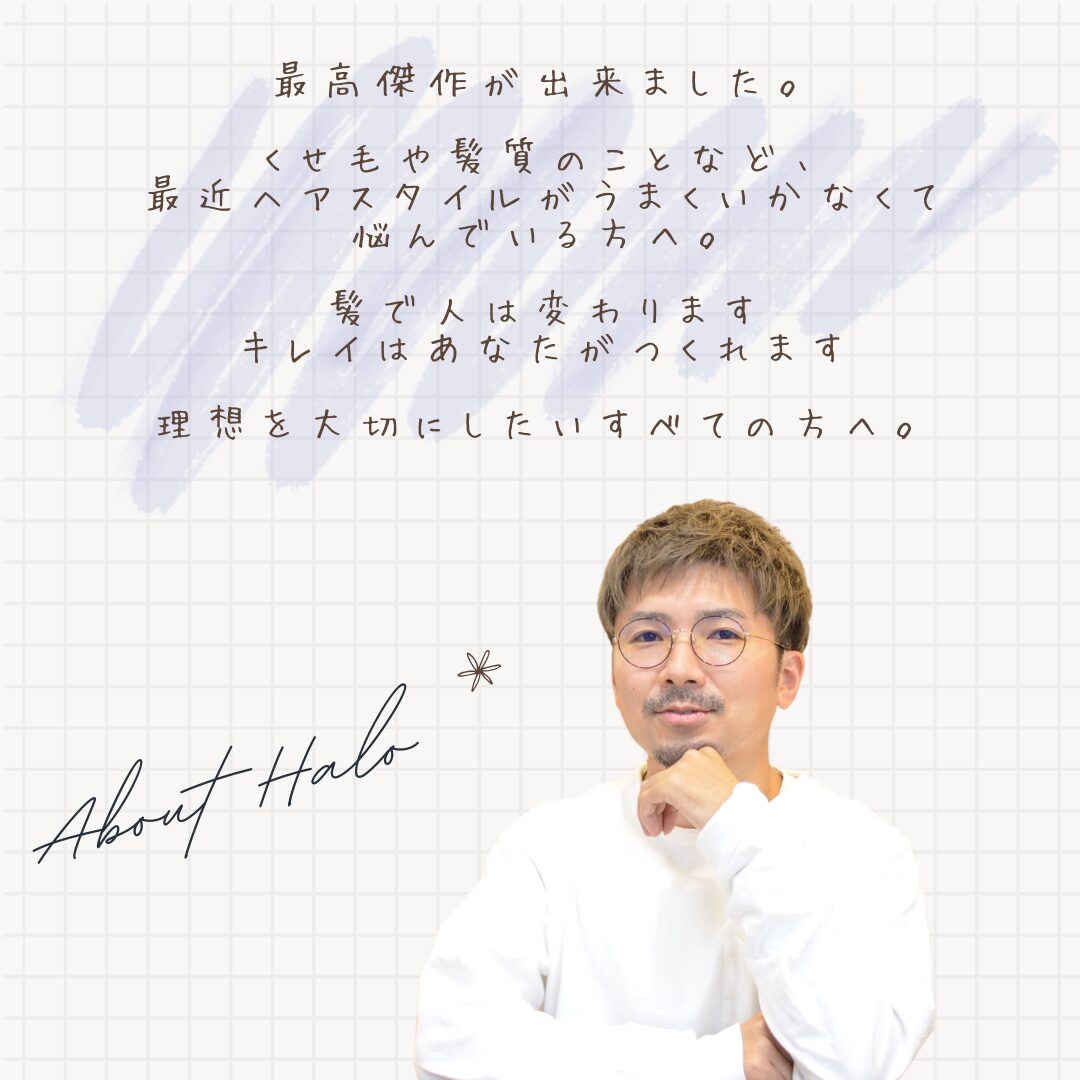 最高傑作が出来ました。
くせ毛や髪質のことなど、
最近ヘアスタイルがうまくいかなくて
悩んでいる方へ。
髪で人は変わります
キレイはあなたがつくれます
理想を大切にしたいすべての方へ。
About Halo